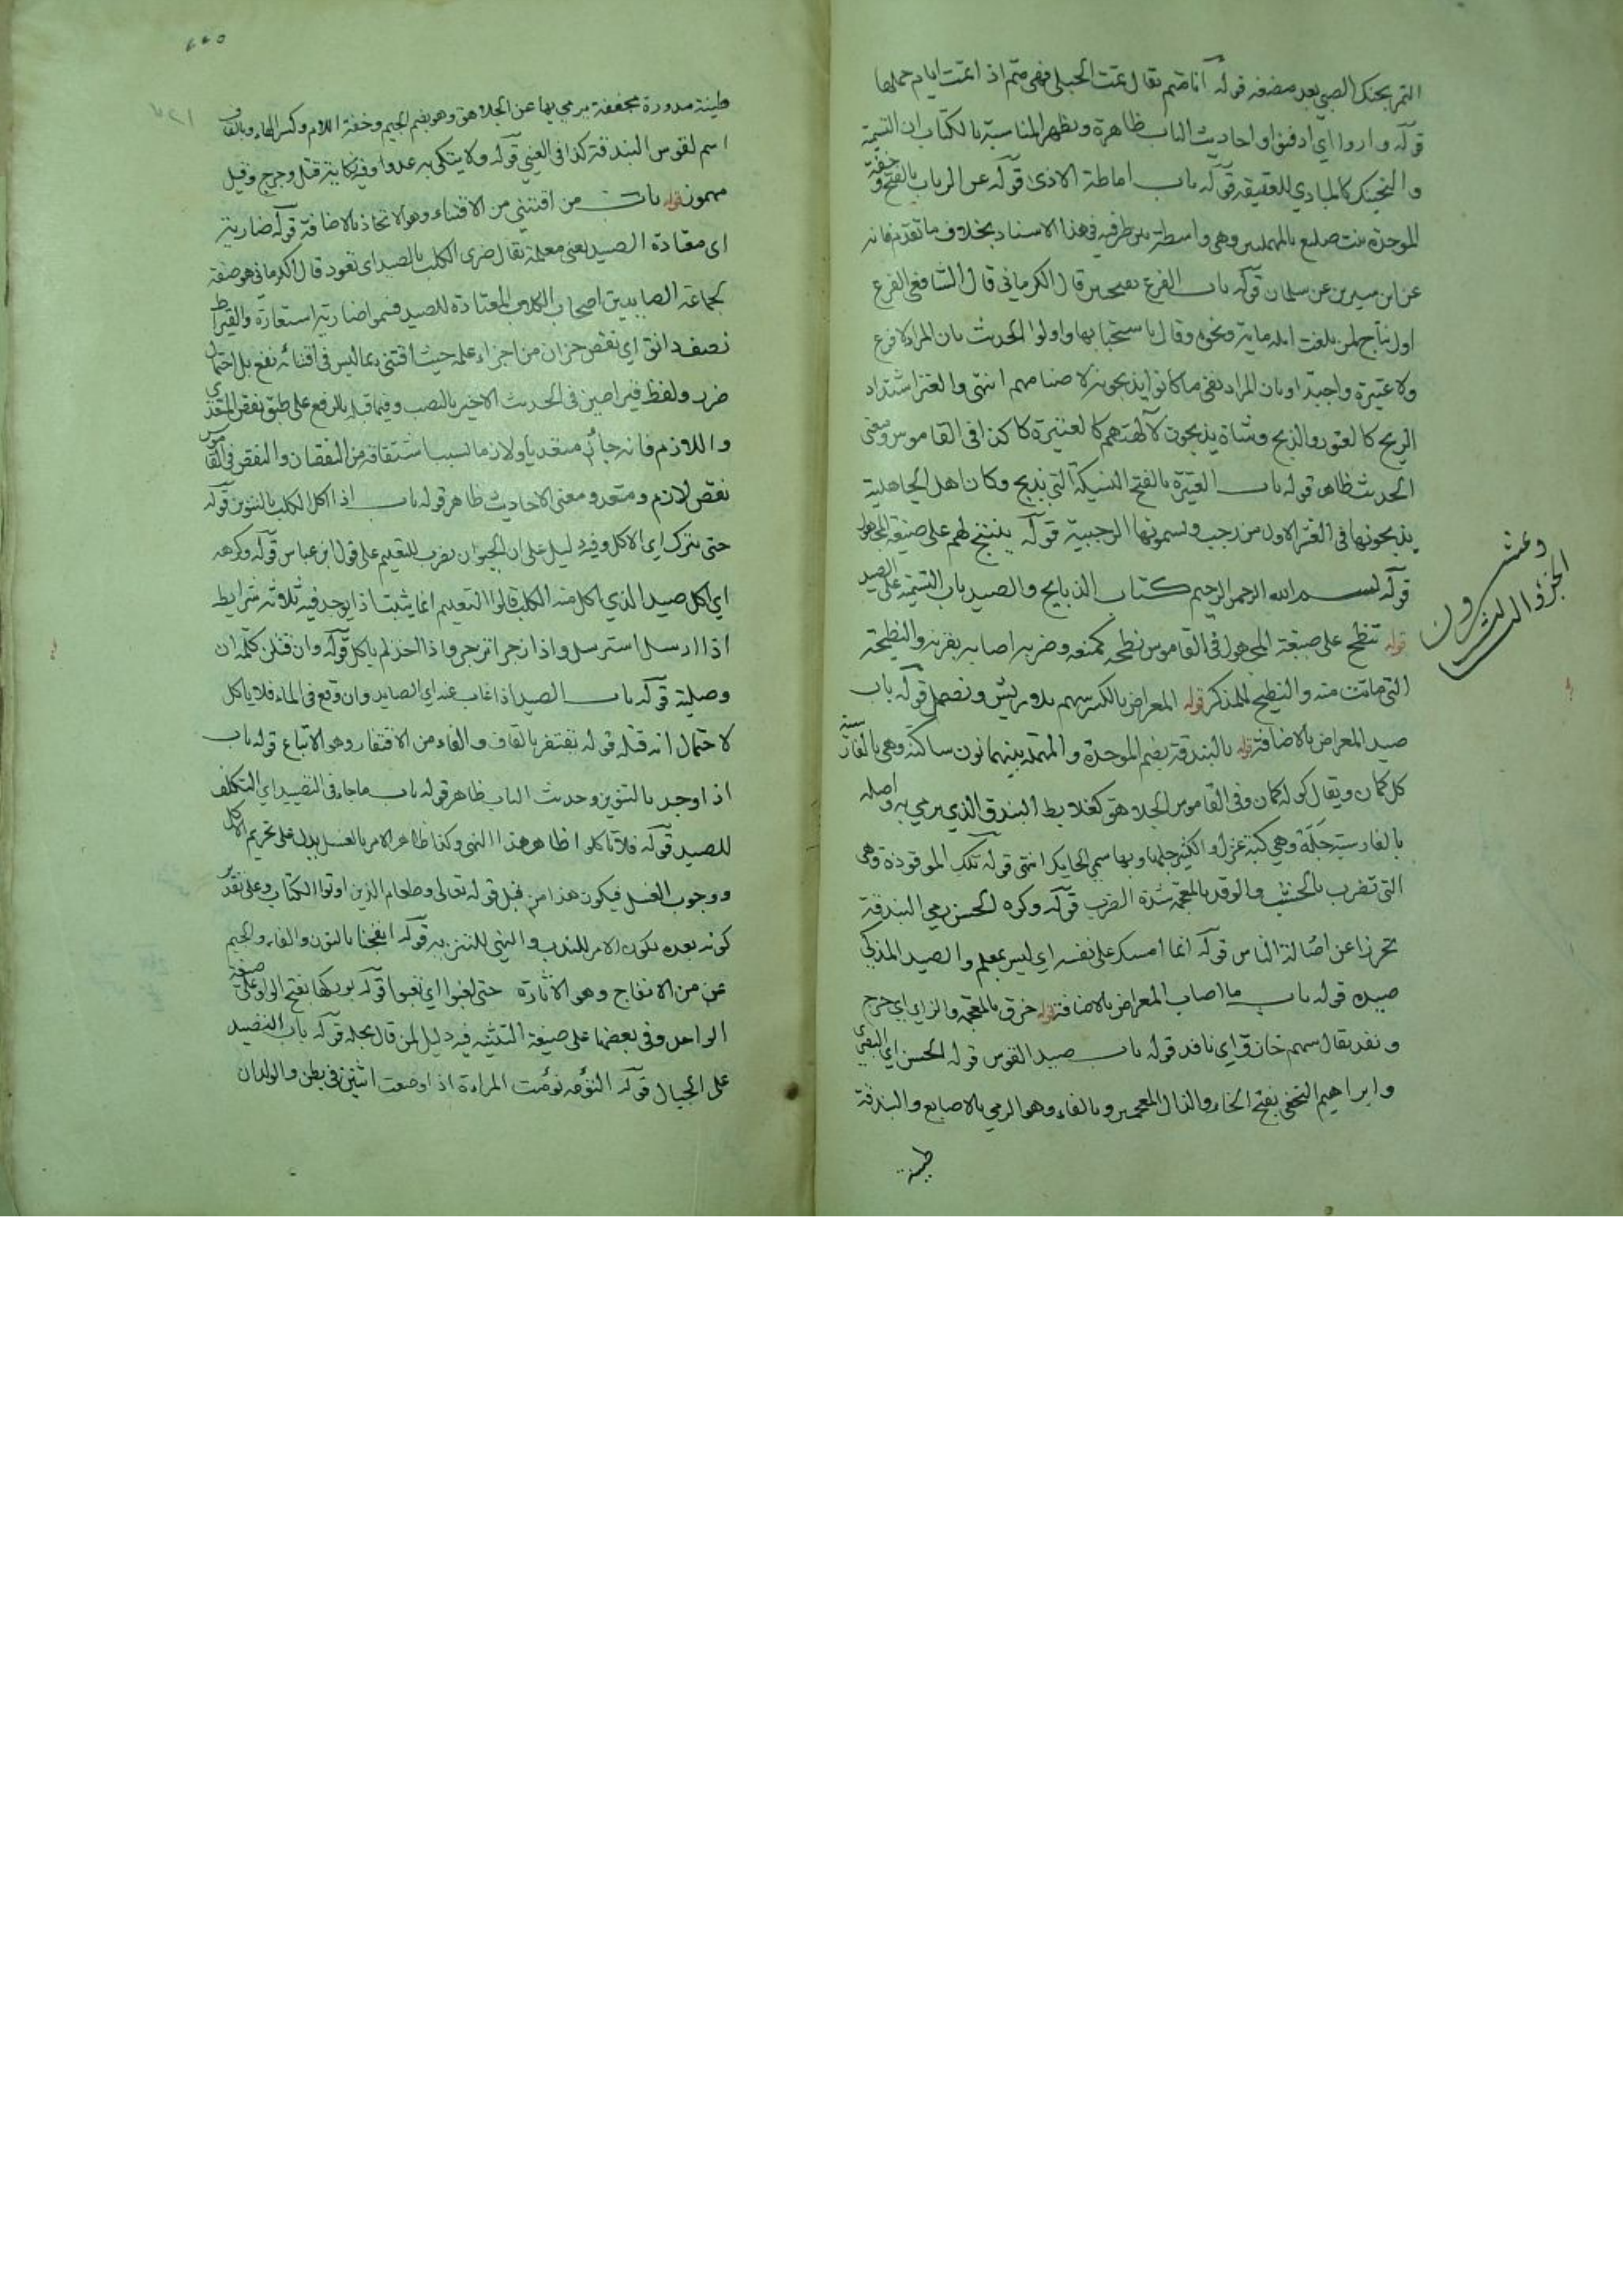 التمر بحنك الصبي بعد مضغه قوله انا متم يقال تمت الحبلى فهي متم اذا تمت ايام حملها
قوله واروا اي ادفنوا واحاديث الباب ظاهرة ويظهر المناسبة بالكتاب ان التسمية
والتحنيك كالمبادي للعقيقة قوله باب اماطة الاذى قوله عن الرباب بالفتح وخفة
الموحدة بنت صليع بالمهملتين وهي واسطة بين طرفيه في هذا الاسناد بخلاف ما تقدم فانه
عن ابن سيرين عن سلمان قوله باب الفرع بفتحتين قال الكرماني قال الشافعي الفرع
اول نتاج لمن بلغت ابله مايه ونحوه وقال باستحبابها واولوا الحديث بان المراد لا فرع
ولا عتيرة واجبة او بان المراد نفي ما كانوا يذبحونه لاصنامهم انتهى والعتر اشتداد
الريح كالعتور والذبح وشاة يذبحون لآلهتهم كالعتيرة كذا في القاموس ومعنى
الحديث ظاهر قوله باب العتيرة بالفتح النسيكة التي تذبح وكان اهل الجاهلية
يذبحونها في العشر الاول من رجب ويسمونها الرجبية قوله ينتج لهم على صيغة المجهول
قوله بسم الله الرحمن الرحيم كتاب الذبايح والصيد باب التسمية على الصيد
قوله تنطح على صيغة المجهول في القاموس نطحه كمنعه وضربه اصابه بقرنه والنطيحة
التي ماتت منه والنطيح للمذكر قوله المعراض بالكسر سهم بلا ريش ونصل قوله باب
صيد المعراض بالاضافة قوله بالبندقة بضم الموحدة والمهملة بينهما نون ساكنة وهي بالفارسية
كل كمان ويقال كوله كمان وفي القاموس الجلاهق كعلابط البندق الذي يرمى به واصله
بالفارسية جله وهي كبة غزل والكثير جلها وبها سمي الحايك انتهى قوله تلك الموقوذة وهي
التي تضرب بالخشب والوقذ بالمعجمة شدة الضرب قوله وكره الحسن رمي البندقة
تحرزا عن اصابة الناس قوله انما امسك على نفسه اي ليس بمعلم والصيد المذكى
صيده قوله باب ما اصاب المعراض بالاضافة قوله خزق بالمعجمة والزاي اي جرح
ونفذ يقال سهم خازق اي نافذ قوله باب صيد القوس قوله الحسن اي البصري
وابراهيم النخعي بفتح الخاء والذال المعجمين وبالفاء وهو الرمي بالاصابع والبندقة
طينة
الجزؤ الثالث
وعشرون
طينة مدورة مجففة يرمى بها عن الجلاهق وهو بضم الجيم وخفة اللام وكسر الهاء وبالقاف
اسم لقوس البندقة كذا في العيني قوله ولا ينكى به عدوا وفيه نكاية قتل وجرح وقيل
مهموز قوله باب من اقتنى من الاقتناء وهو الاتخاذ بالاضافة قوله ضارية
اي معتادة الصيد يعني معلمة يقال ضرى الكلب بالصيد اي تعود قال الكرماني هو صفة
لجماعة الصايدين اصحاب الكلاب المعتادة للصيد فسموا ضارية استعارة والقيراط
نصف دانق اي نقص جزان من اجزاء عمله حيث اقتنى بما ليس في اقتنائه نفع بل احتمال
ضرر ولفظ قيراطين في الحديث الاخير بالنصب وفيما قبله بالرفع على طبق نقص المتعدي
واللازم فانه جائز متعديا ولازما لسبب اشتقاقه من النقصان والنقص في القاموس
نقص لازم ومتعد ومعنى الاحاديث ظاهر قوله باب اذا اكل الكلب بالتنوين قوله
حتى يترك اي الاكل وفيه دليل على ان الحيوان يضرب للتعليم على قول ابن عباس قوله وكرهه
اي اكل صيد الذي اكل منه الكلب قالوا التعليم انما يثبت اذا يوجد فيه ثلاثة شرايط
اذا ارسل استرسل واذا زجر انزجر واذا اخذ لم ياكل قوله وان قتلن كلمة ان
وصلية قوله باب الصيد اذا غاب عنه اي الصايد وان وقع في الماء فلا ياكل
لاحتمال انه قتله قوله يقتفر بالقاف والفاء من الاقتفار وهو الاتباع قوله باب
اذا وجد بالتنوين وحديث الباب ظاهر قوله باب ما جاء في التصيد اي التكلف
للصيد قوله فلا تاكلوا ظاهر هذا النهي وكذا ظاهر الامر بالغسل يدل على تحريم الاكل
ووجوب الغسل فيكون هذا من قبل قوله تعالى وطعام الذين اوتوا الكتاب وعلى تقدير
كونه بعده يكون الامر للندب والنهي للتنزيه قوله انفجنا بالنون والفاء والجيم
من الانفاج وهو الاثارة حتى لغبوا اي تعبوا قوله بوركها بفتح الواو على صيغة
الواحد وفي بعضها على صيغة التثنية فيه دليل لمن قال بحله قوله باب التصيد
على الجبال قوله التؤمة تؤمت المراءة اذا وضعت اثنين في بطن والولدان